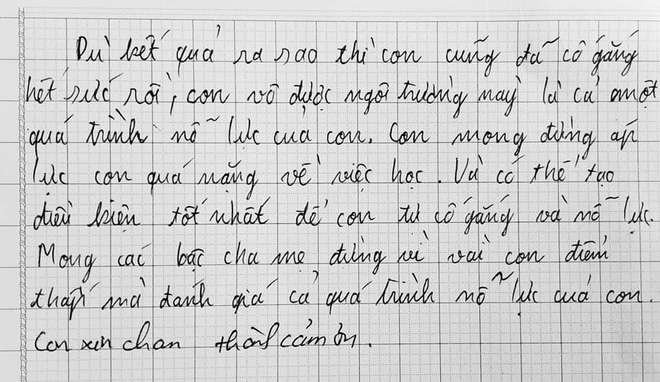 Dù kết quả ra sao thì con cũng đã cố gắng
hết sức rồi, con vô được ngôi trường này là cả một
quá trình nỗ lực của con. Con mong đừng áp
lực con quá nặng về việc học. Và có thể tạo
điều kiện tốt nhất để con tự cố gắng và nỗ lực.
Mong các bậc cha mẹ đừng vì vài con điểm
thấp mà đánh giá cả quá trình nỗ lực của con.
Con xin chân thành cảm ơn.